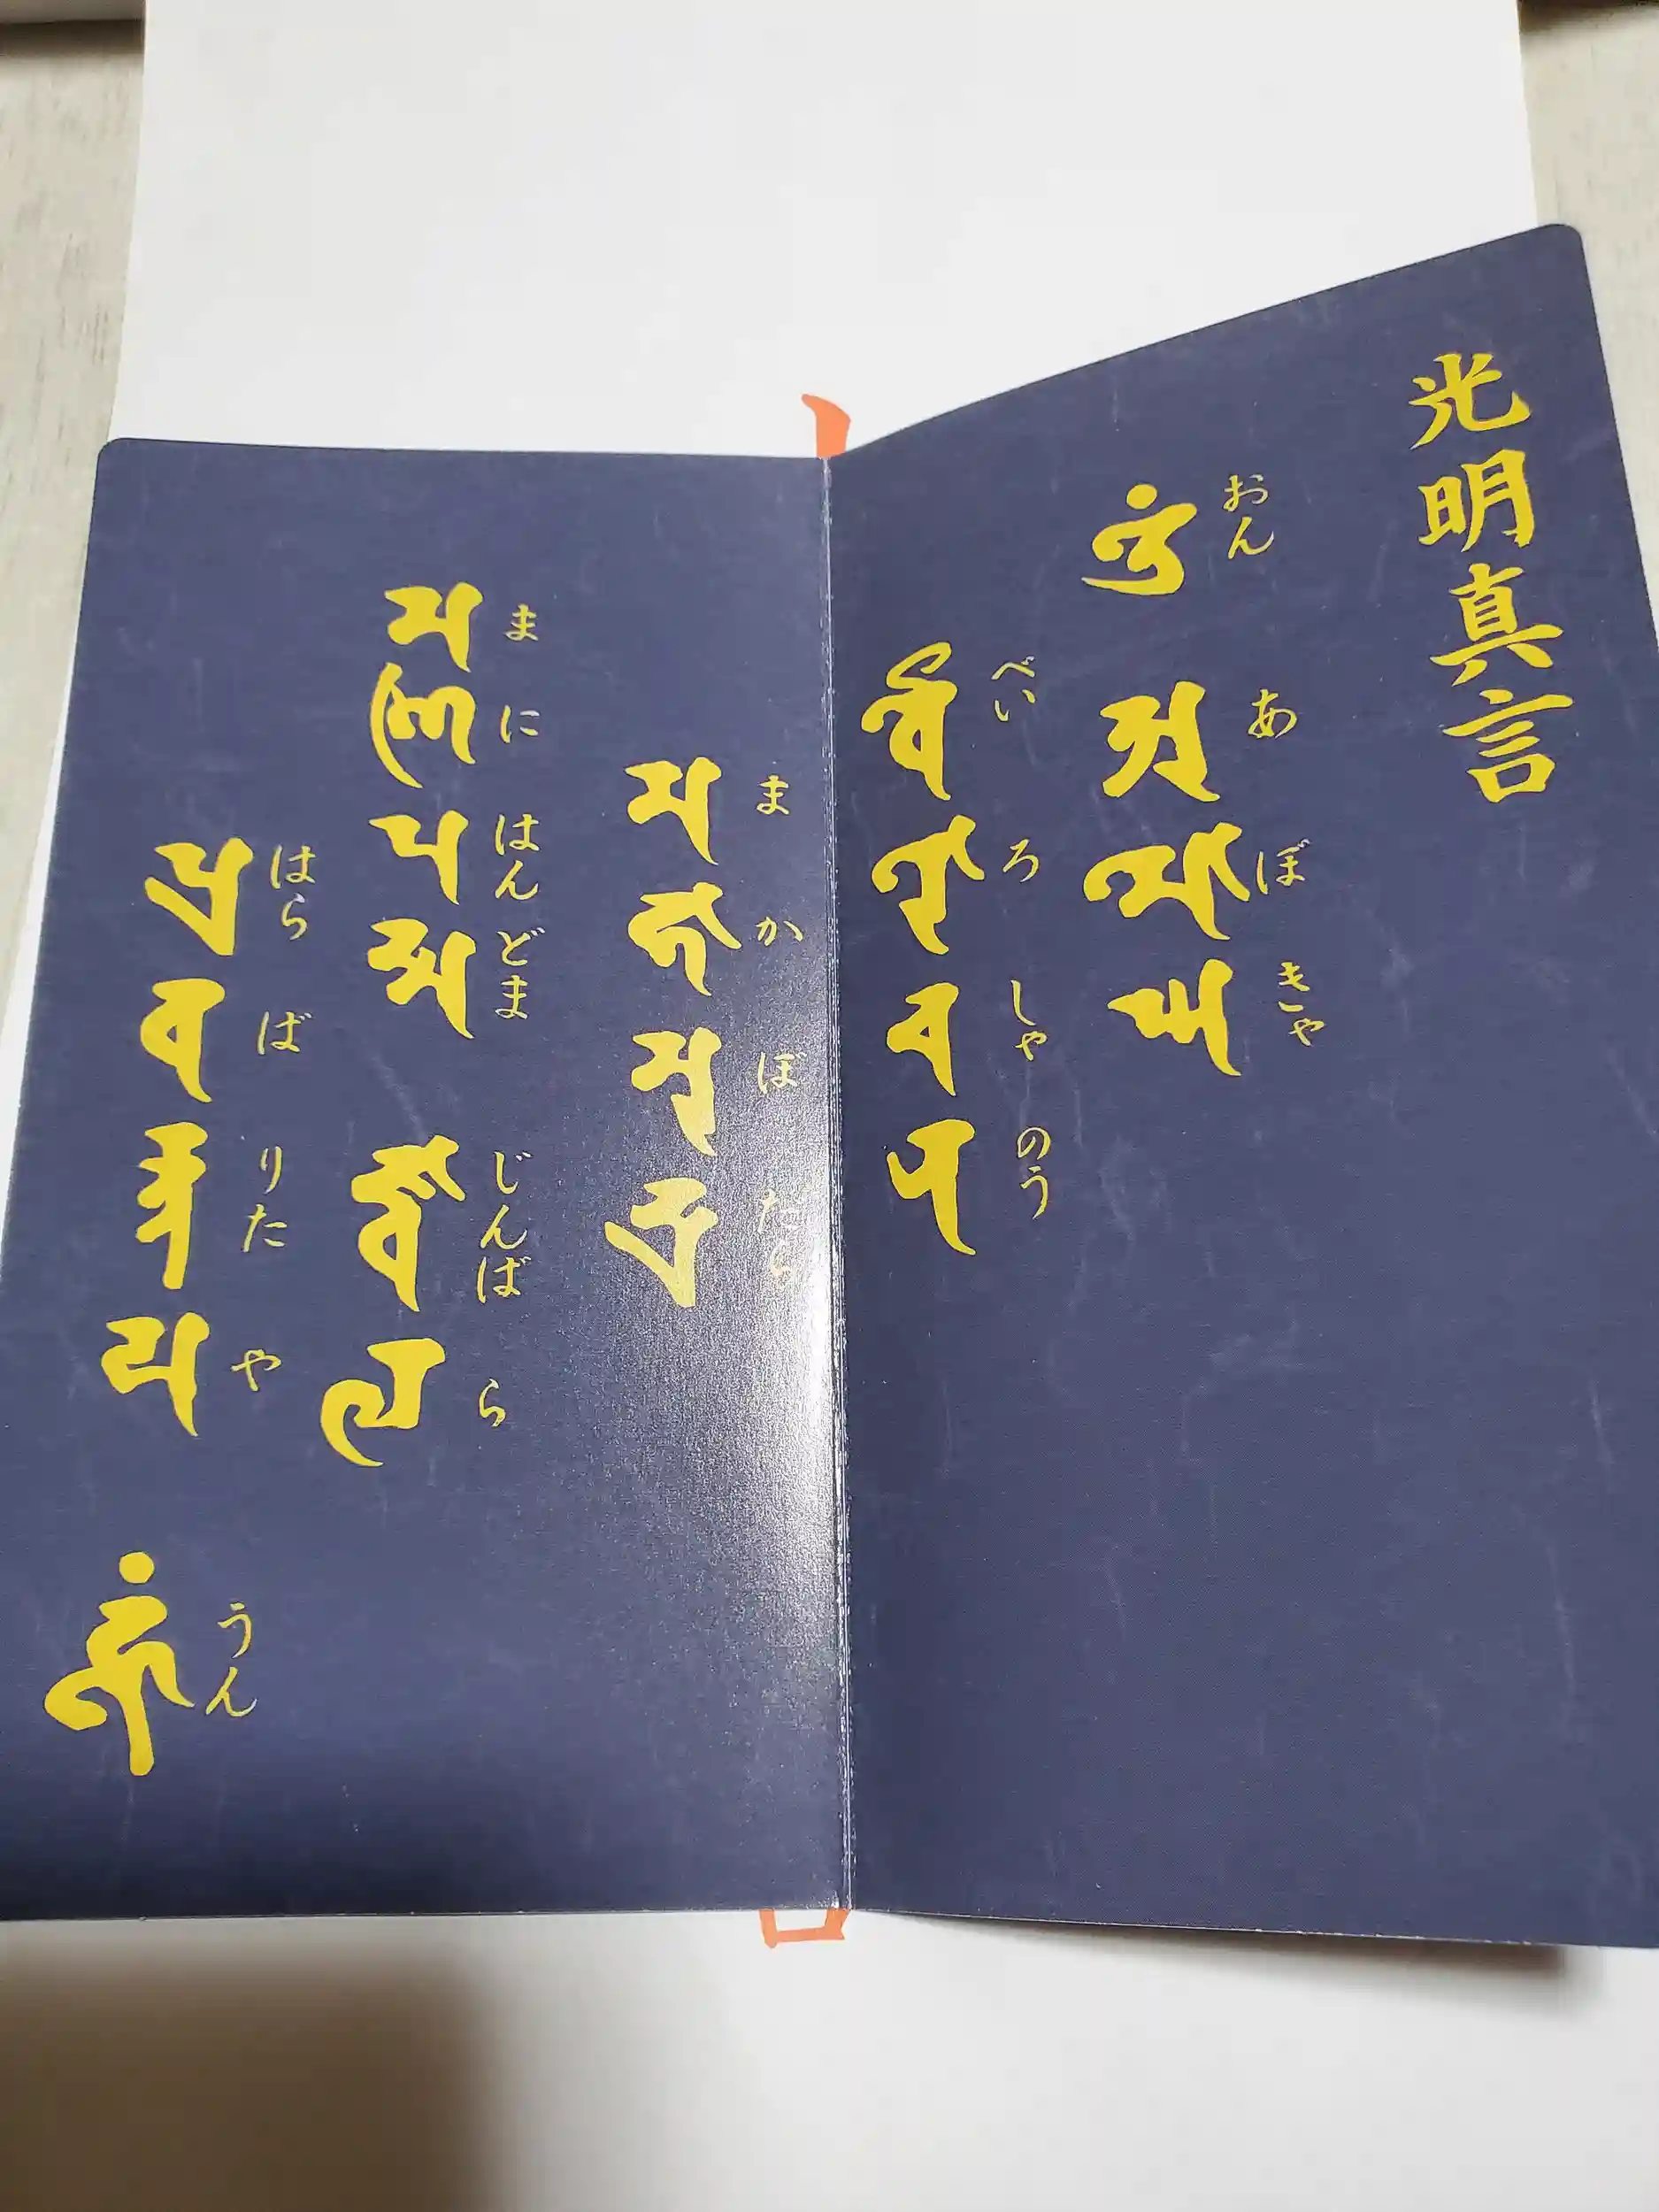 光明真言
おん あ ぼ きゃ
𑖌𑖼 𑖀 𑖦𑖺 𑖑
べい ろ しゃ のう
𑖪𑖹 𑖨𑖺 𑖓 𑖡
ま か ぼ だら
𑖦 𑖮𑖯 𑖦𑖲 𑖟𑖿𑖨
ま に はんどま じんば ら
𑖦 𑖜𑖰 𑖢 𑖟𑖿𑖦 𑖕𑖿𑖪𑖯 𑖩
はら ば りた や うん
𑖢𑖿𑖨 𑖪 𑖨𑖿𑖝𑖿𑖝 𑖧 𑖮𑖳𑖽